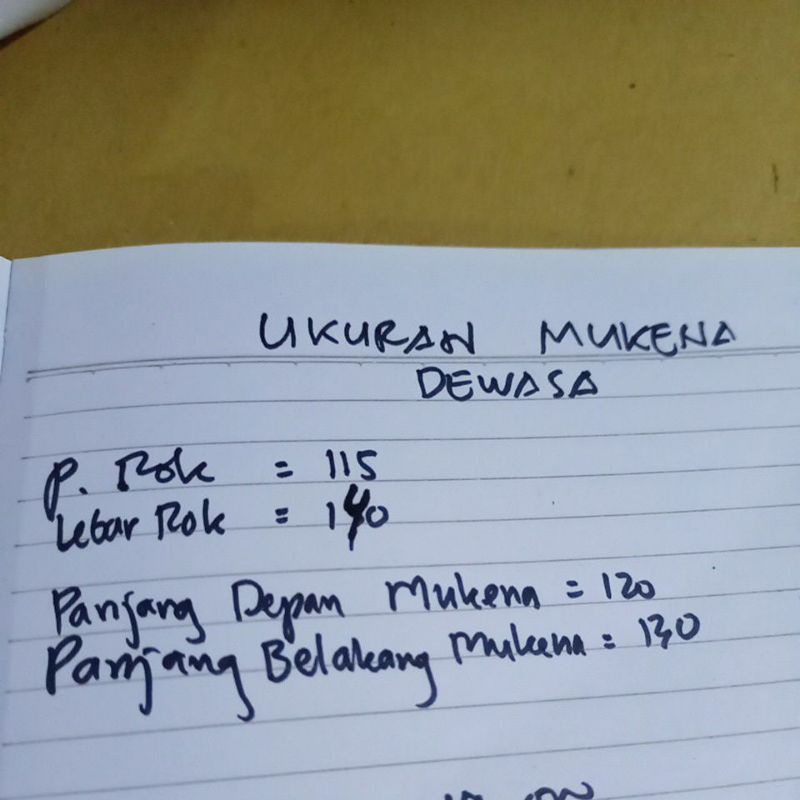 UKURAN MUKENA
DEWASA
P. Rok = 115
Lebar Rok = 140
Panjang Depan Mukena = 120
Panjang Belakang Mukena = 130